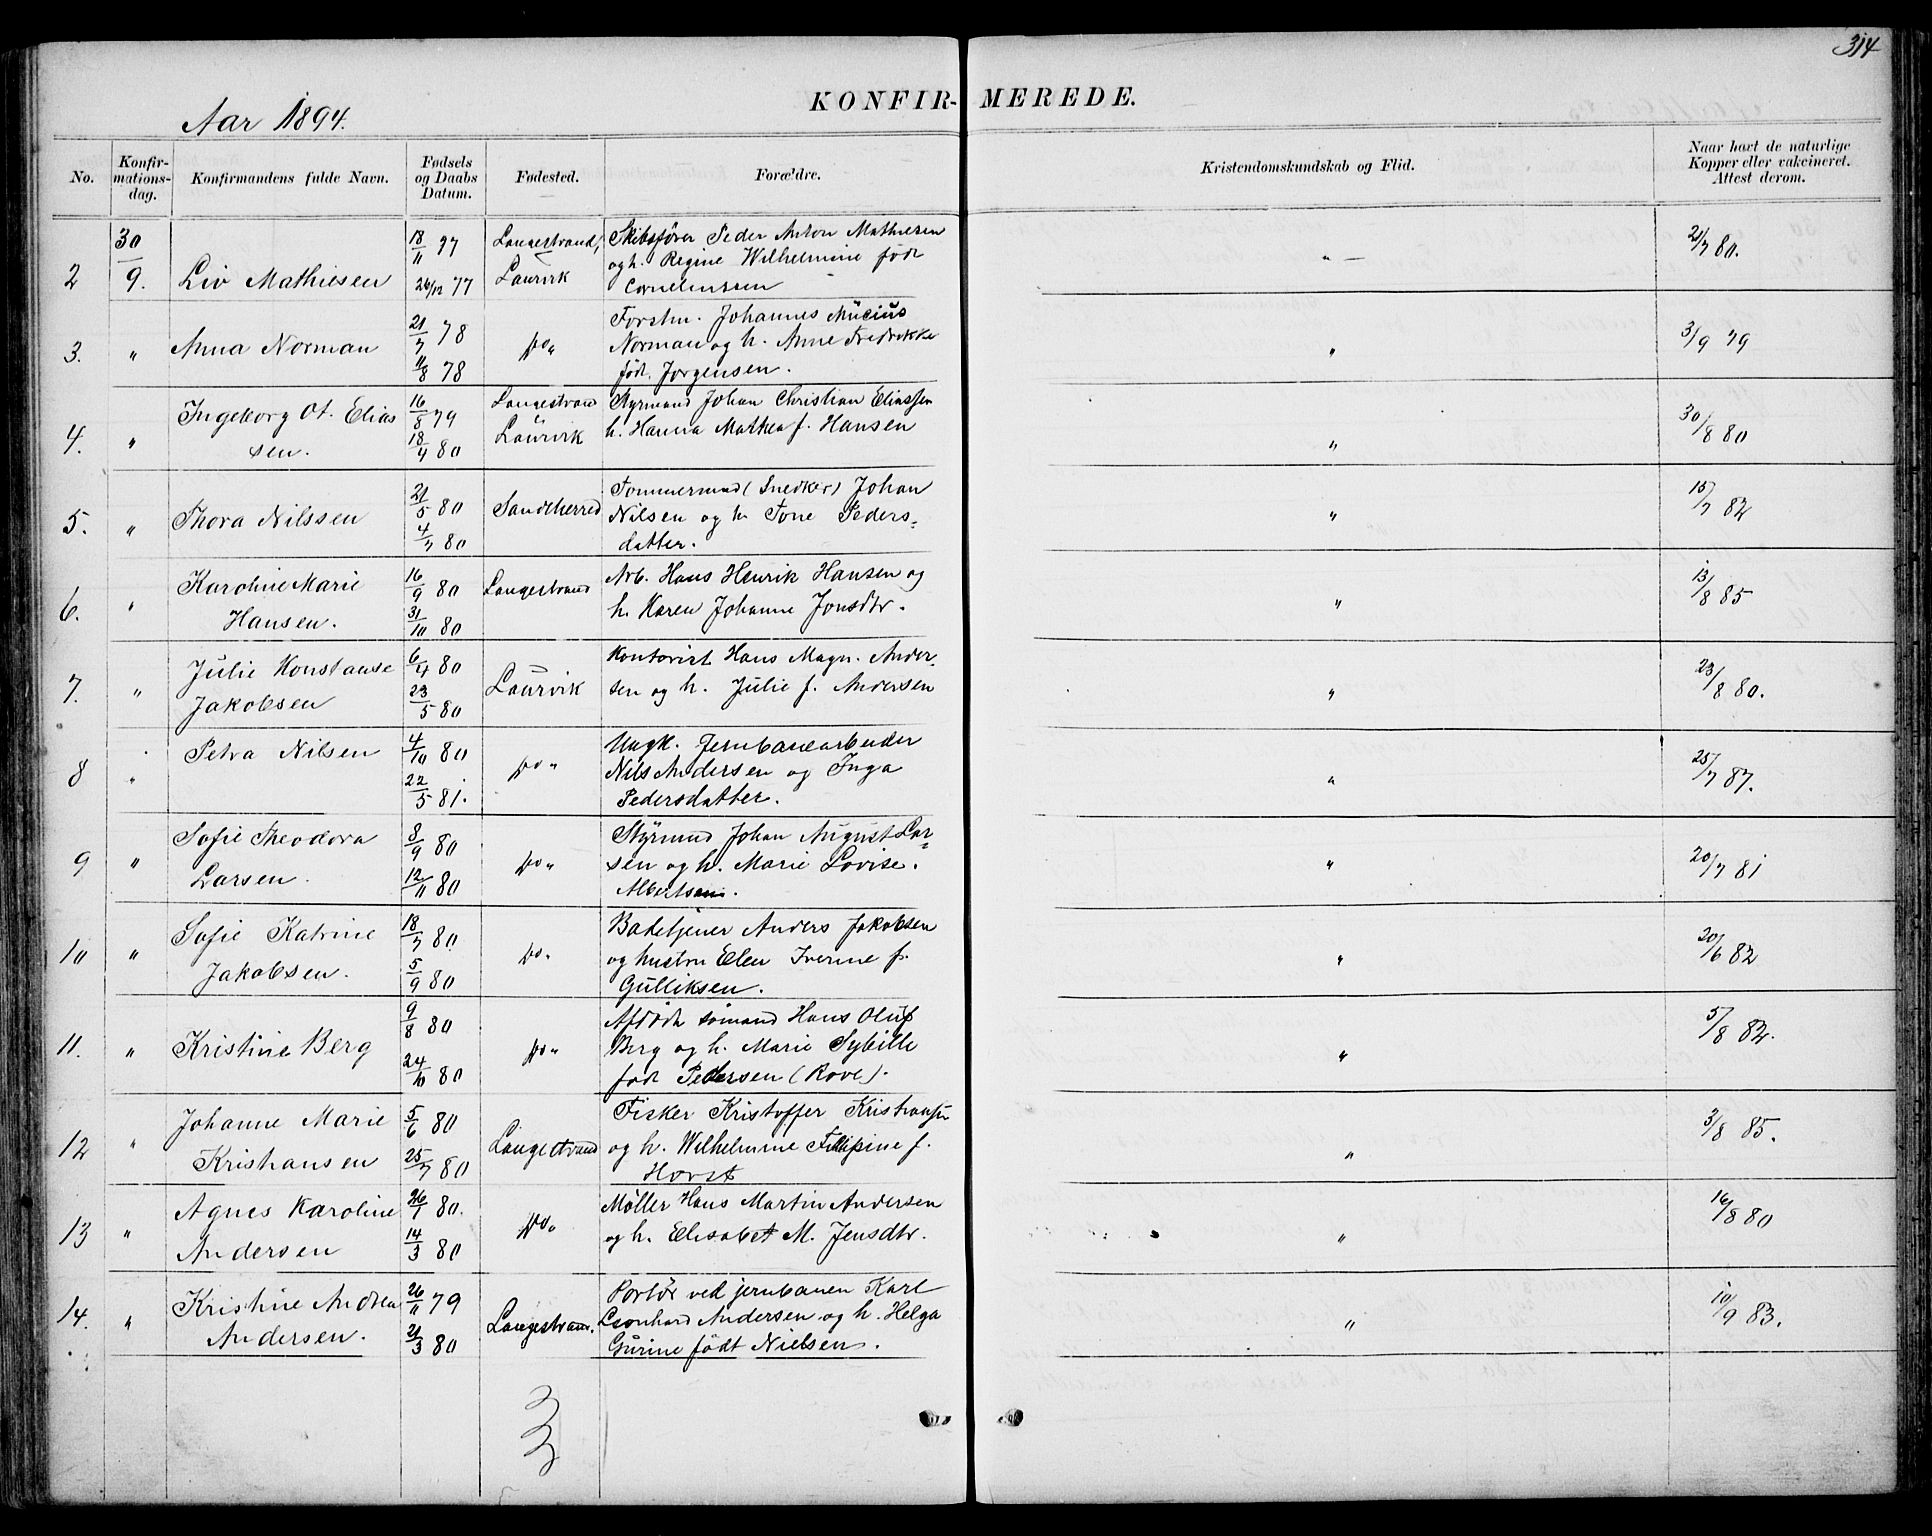 314
KONFIR- MEREDE.
Aar 1894.
No.
Konfir-
mations-
dag.
Konfirmandens fulde Navn.
Fødsels
og Daabs
Datum.
Fødested.
Forældre.
Kristendomskundskab og Flid.
Naar havt de naturlige
Kopper eller vakcineret.
Attest derom.
2 30/9. Liv Mathiesen
18/11 77
26/12 77
Langestrand,
Laurvik
Skibsfører Peder Anton Mathiesen
og h. Regine Wilhelmine født
Corneliussen
" —
21/7 80.
3. " Anna Norman
21/7 78
11/8 78
do "
Forstm. Johannes Mucius
Norman og h. Anne Fredrikke
født. Jorgensen.
"
3/9 79
4. " Ingeborg Ot. Elias
sen.
16/8 79
18/4 80
Langestrand
Laurvik
Styrmand Johan Christian Eliassen
h. Hanna Mathea f. Hansen
"
30/8 80
5. " Thora Nilssen
21/5 80
4/7 80
Sandeherred
Tommermand (Snedker) Johan
Nilsen og h. Tone Peders-
datter.
"
15/7 82
6. " Karoline Marie
Hansen.
16/9 80
31/10 80
Langestrand
Arb. Hans Henrik Hansen og
h. Karen Johanne Jonsdtr.
"
13/8 85
7. " Julie Konstanse
Jakobsen
6/4 80
23/5 80
Laurvik
Kontorist Hans Magn. Ander-
sen og h. Julie f. Andersen
"
23/8 80.
8 " Petra Nilsen
4/10 80
22/5 81.
do "
Ungk. Jernbanearbeider
Nils Andersen og Inga
Pedersdatter.
"
25/7 87.
9 " Sofie Theodora
Larsen.
8/9 80
12/11 80
do "
Styrmand Johan August Lar-
sen og h. Marie Lovise.
Albertsen.
"
20/7 81
10 " Sofie Katrine
Jakobsen.
18/7 80.
5/9 80
do "
Badetjener Anders Jakobsen
og hustru Elen Iverine f.
Gulliksen.
"
20/6 82
11. " Kristine Berg
9/8 80
24/10 80
do "
Afdøde sømand Hans Oluf
Berg og h. Marie Sybille
født Pedersen (Rove).
"
5/8 82.
12 " Johanne Marie
Kristiansen
5/6 80
25/7 80
Langestrand
Fisker Kristoffer Kristiansen
og h. Wilhelmine Fillipine f.
Horst
"
3/8 85.
13 " Agnes Karoline
Andersen
26/1 80.
14/3 80
do "
Møller Hans Martin Andersen
og h. Elisabet M. Jensdtr.
"
16/8 80
14. " Kristine Andrea
Andersen.
26/11 79
21/3 80
Langestran.
Portør ved jernbanen Karl
Leonhard Andersen og h. Helga
Gurine født Nielsen.
"
10/9 83.